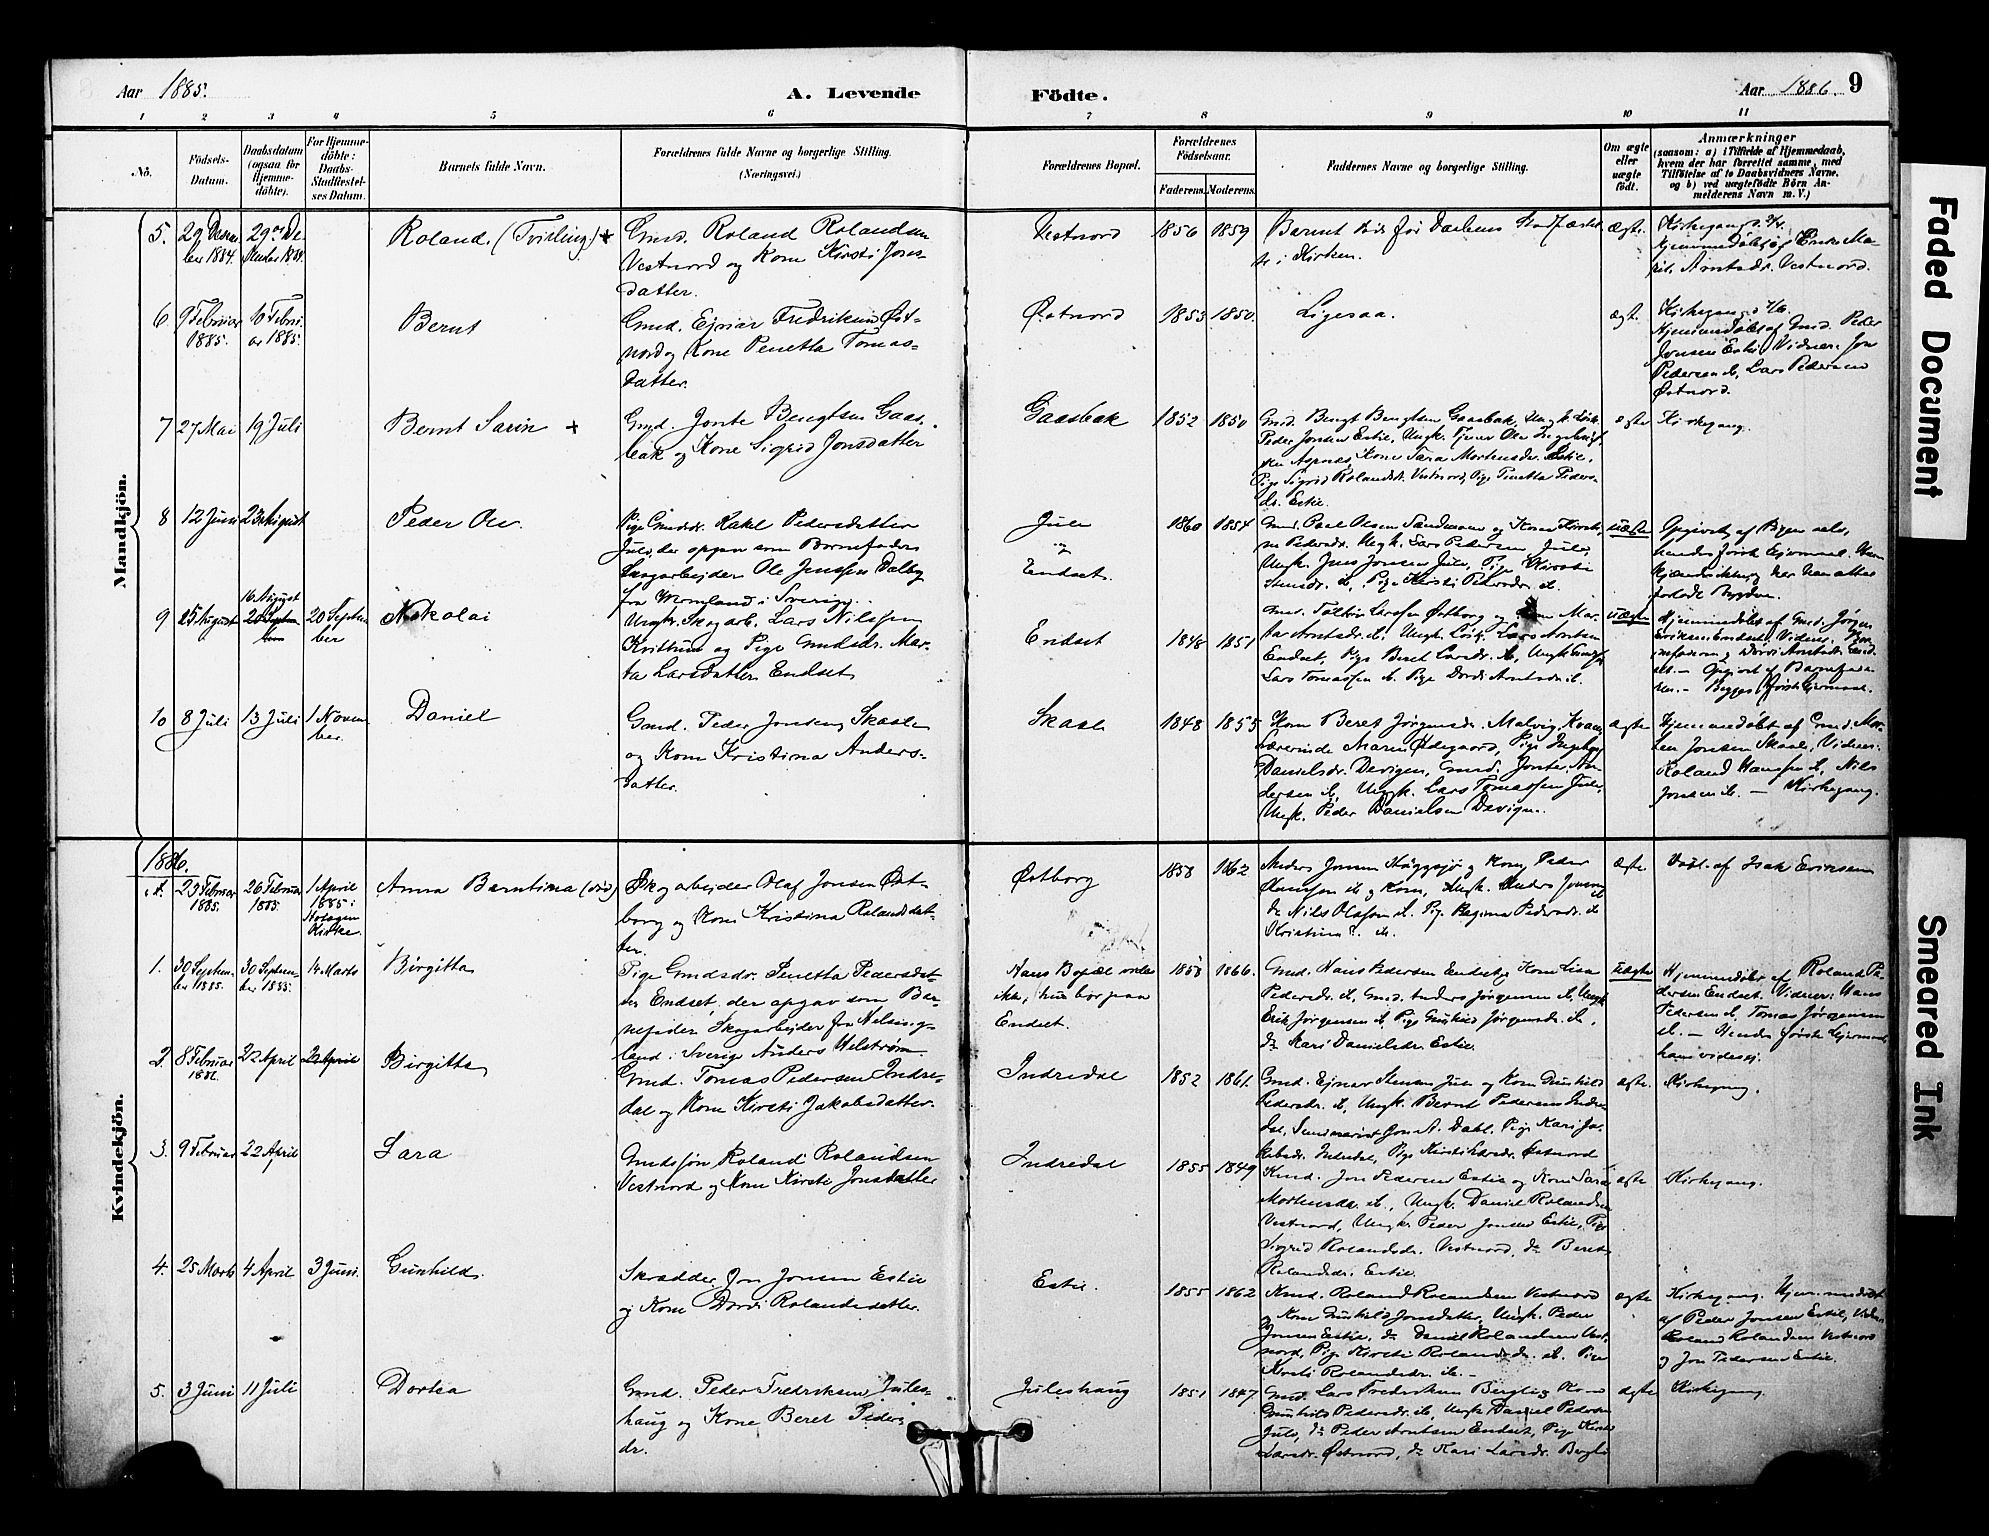 Aar 1885.
A. Levende
Födte.
Aar 1886. 9
1 2 3 4 5 6 7 8 9 10 11
No.
Födsels-
Datum.
Daabsdatum
(ogsaa for
Hjemme-
döbte).
For Hjemme-
döbte:
Daabs-
Stadfæstel-
ses Datum.
Barnets fulde Navn.
Forældrenes fulde Navne og borgerlige Stilling.
(Næringsvei.)
Forældrenes Bopæl.
Forældrenes
Födselsaar.
Faderens. Moderens.
Faddernes Navne og borgerlige Stilling.
Om ægte
eller
uægte
født.
Anmærkninger
(saasom: a) i Tilfælde af Hjemmedaab,
hvem der har forrettet samme, med
Tilföielse af to Daabsvidners Navne,
og b) ved uægtefödte Börn An-
melderens Navn m. V.)
Mandkjön.
5. 29 Decem-
ber 1884.
29 De-
cember 1884
Roland. (Tvilling.) +
Gmd. Roland Rolandsen
Vestnord og Kone Kirsti Jons-
datter.
Vestnord
1856 1859
i Kirken.
ægte.
Kirkegang
Hjemmedøbt af
Arntsdr. Vestnord.
6. 9 Februar
1885.
10 Febru-
ar 1885.
Bernt
Gmd. Ejnar Fredriksen Øst-
nord og Kone Penetta Tomas-
datter.
Østnord
1853 1850.
Ligesaa.
ægte.
Kirkegang
Hjemmedøbt af Gmd. Peder
Jonsen Estil, Vidner: Jon
Pedersen ib, Lars Pedersen
Østnord.
7 27 Mai 19 Juli
Bernt Sarin +
Gmd. Jonte Bengtsen Gaas-
bak og Kone Sigrid Jonsdatter
Gaasbak
1852 1850
Gmd. Bengt Bengtsen Gaasbak, Ungk.
Peder Jonsen Estil, Ungk. Tjener Ole
Aspnes, Kone Sara Mortensdr. Estil,
Pige Sigrid Rolandsdr. Vestnord, Pige Penetta Peders-
dr. Estil
ægte
Kirkegang.
8 12 Juni 23 August
Peder Ole.
Pige Gmdsdr. Rakel Pedersdatter
Jule, der opgav som Barnefader
Skogarbejder Ole Jenssen Dalby
fra Vermland i Sverige.
Jule
og
Endset.
1860 1854
Gmd. Paul Olsen Sandmoen og Kone
Pedersdr. Ungk. Lars Pedersen Jule,
Ungk. Jens Jonsen Jule, Pige Kirsti
ib, Pige Kirsti Pedersdr. ib.
uægte
Opgivet af Pigen selv,
hendes første Lejermaal.
forladt Bygden.
9 15 August
16 August
20 Septem-
ber
20 Septem-
ber
Nikolai
Ungk. Skogarb. Lars Nilssen
Kvittum og Pige Gmdsdr. Mar-
ta Larsdatter Endset
Endset
1848 1851
Larssen Østborg og Kone Mar-
ta Arntsdr. ib, Ungk. Lars Arntsen
Endset, Pige Beret Larsdr. ib, Ungk.
Lars Tomassen ib. Pige Dordi Arntsdr. ib.
uægte
Hjemmedøbt af Gmd. Jørgen
Eriksen Endset. Vidner: Bar-
nefaderen og Dordi Arntsdr. End-
set. - Opgivet af Barnefade-
ren. - Begges første Lejermaal.
10 8 Juli 13 Juli
1 Novem-
ber.
Daniel
Gmd. Peder Jonsen Skaale
og Kone Kristina Anders-
datter.
Skaale
1848 1855
Kone Beret Jørgensdr. Malvig, Kvam,
Lærerinde Maren Ødegaard, Pige Ingeborg
Danielsdr. Devigen, Gmd. Jonte An-
dersen ib, Ungk. Lars Tomassen Jule,
Ungk. Peder Danielsen Devigen.
ægte
Hjemmedøbt af Gmd. Mor-
ten Jonsen Skaale, Vidner:
Roland Hanssen ib, Nils
Jonsen ib. - Kirkegang.
Kvindekjön.
1886.
23 Februar
1885.
26 Februar
1885.
1 April
1885 i
Nolagen
Kirke.
Anna Barntina (død)
Skogarbejder Olaf Jonsen Øst-
borg og Kone Kristina Rolandsdat-
ter.
Østborg
1858 1862
Anders Jonsen og Kone, Peder
Olaussen ib og Kone, Ungk. Anders Jonsen ib
do Nils Olafsen ib. Pige Regina Pedersdr. ib
Kristina ib.
ægte.
Døbt af Isak Eriksen
1. 30 Septem-
ber 1885.
30 Septem-
ber 1885.
14 Marts
Birgitta
Pige Gmdsdr. Penetta Pedersdat-
ter Endset, der opgav som Bar-
nefader Skogarbejder fra Helsing-
land i Sverige Anders Helstrøm.
Hans Bopæl vides
ikke, hun bor paa
Endset.
1858 1866.
Gmd. Hans Pedersen Endset og Kone Lisa
Pedersdr. ib, Gmd. Anders Jørgensen ib, Ungk
Erik Jørgensen ib, Pige Gunhild Jørgensdr. ib,
do Kari Danielsdr. Estil.
uægte
Hjemmedøbt af Roland Pe-
dersen Endset. Vidner: Hans
Pedersen ib, Tomas Jørgensen
ib. - Hendes første Lejermaal,
hans vides ej.
2. 8 Februar
1886.
22 April 22 April
Birgitta
Gmd. Tomas Pedersen Indre-
dal og Kone Kirsti Jakobsdatter.
Indredal
1852 1861.
Gmd. Ejnar Stensen Jule og Kone Gunhild
Pedersdr. ib, Ungk. Bernt Pedersen Indre-
dal, Seminarist Jon A. Dahl. Pige Kari Ja-
kobsdr. Indredal, Pige Østnord
ægte.
Kirkegang.
3. 9 Februar 22 April
Sara
Gmdssøn Roland Rolandsen
Vestnord og Kone Kirsti Jonsdatter
Indredal
1855 1849
Gmd. Jon Pedersen Estil og Kone Sara
Mortensdr. ib, Ungk. Daniel Rolandsen
Vestnord, Ungk. Peder Jonsen Estil, Pige
Sigrid Rolandsdr. Vestnord, do Beret
Rolandsdr. Estil.
ægte
Kirkegang.
4. 25 Marts 4 April 3 Juni.
Gunhild.
Skrædder Jon Jonsen Estil
og Kone Dordi Rolandsdatter.
Estil.
1855 1862
Gmd. Roland Rolandsen Vestnord
og Kone Gunhild Jonsdatter, Ungk. Peder
Jonsen Estil, do Daniel Rolandsen Vest-
nord, Pige Kirsti Rolandsdr. ib. Pige
Kirsti Rolandsdr. ib. -
ægte
Kirkegang. Hjemmedøbt
af Peder Jonsen Estil, Vidner
Roland Rolandsen Vestnord
og Jon Pedersen Estil.
5. 3 Juni 11 Juli
Dortea
Gmd. Peder Fredriksen Jules-
haug og Kone Beret Peders-
dr.
Juleshaug
1851 1847
Gmd. Lars Fredriksen Berglie Kone
Gunhild Pedersdr. ib, Ungk Daniel Pedersen
Jule, do Peder Arntsen Endset, Pige Kirsti
Larsdr. Østnord, do Kari Larsdr. Berglie
ægte
Kirkegang.
Faded Document
Smeared Ink